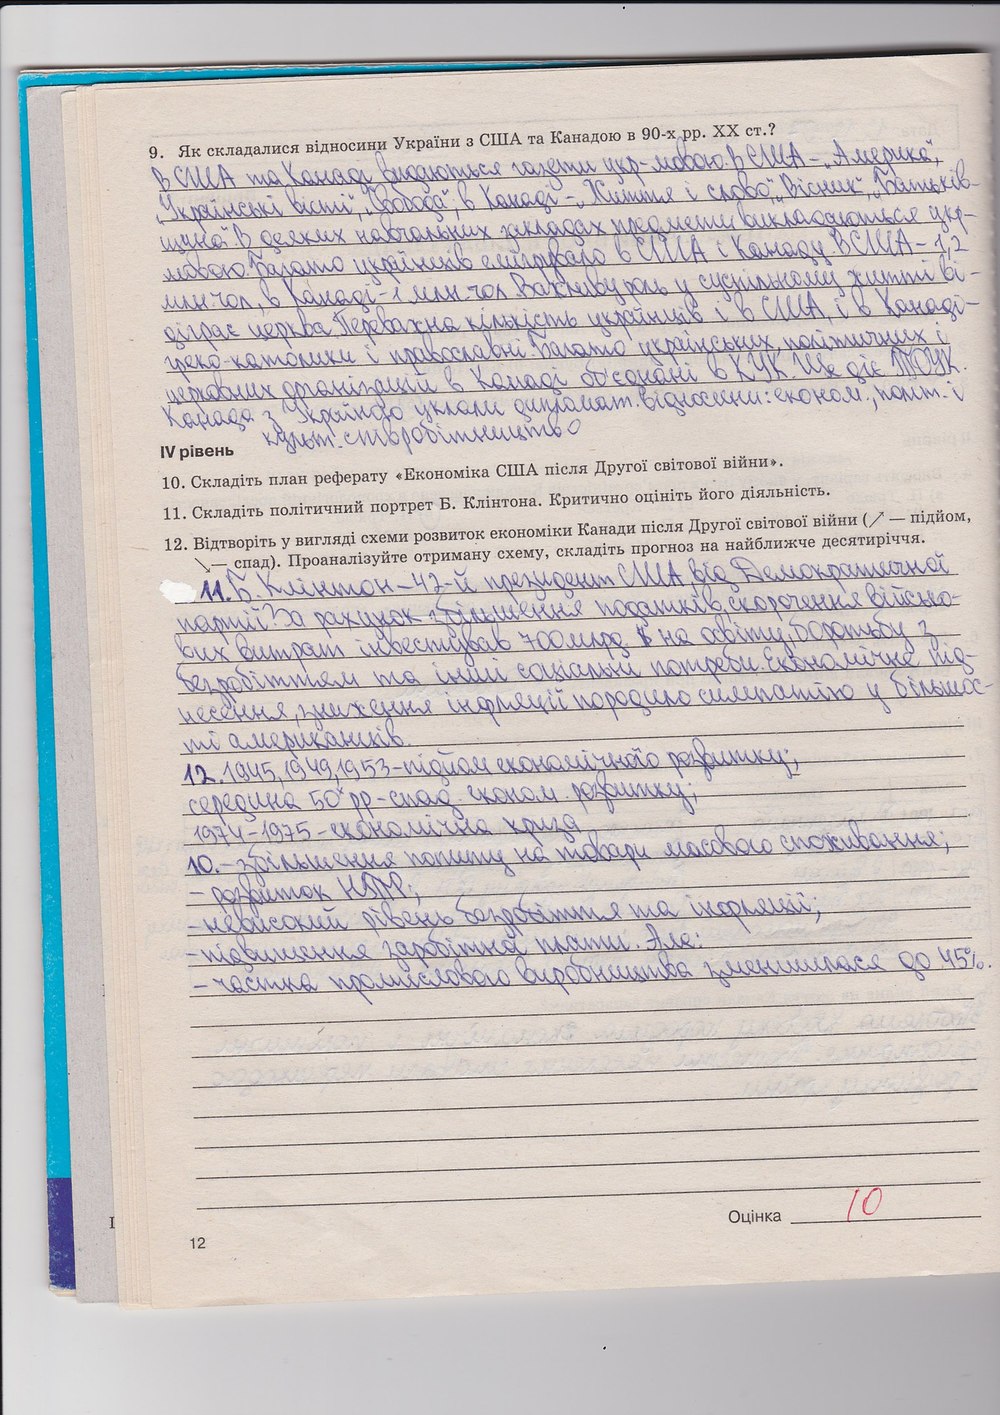 9. Як складалися відносини України з США та Канадою в 90-х рр. XX ст.?
В США та Канаді видаються газети укр-мовою. В США – „Америка",
„Українські вісті", „Свобода"; в Канаді – „Життя і слово", „Вісник", „Батьків-
щуна". В деяких навчальних закладах предмети викладаються укр-
мовою. Багато українців емігрувало в США і Канаду. В США – 1,2
млн. чол, в Канаді – 1 млн. чол. Важливу роль у суспільному житті ві-
діграє церква. Переважна кількість українців і в США, і в Канаді –
греко-католики і православні. Багато українських, політичних і
церковних організацій в Канаді об'єднані в КУК. Ще діє ТОУК.
Канада з Україною уклали дипломат. відносини: економ., політ. і
культ. співробітництво
IV рівень
10. Складіть план реферату «Економіка США після Другої світової війни».
11. Складіть політичний портрет Б. Клінтона. Критично оцініть його діяльність.
12. Відтворіть у вигляді схеми розвиток економіки Канади після Другої світової війни (↗ — підйом,
↘ — спад). Проаналізуйте отриману схему, складіть прогноз на найближче десятиріччя.
11. Б. Клінтон – 42-й президент США від Демократичної
партії. За рахунок збільшення податків, скорочення військо-
вих витрат інвестував 700 млрд. $ на освіту, боротьбу з
безробіттям та інші соціальні потреби. Економічне під-
несення, зниження інфляції породило симпатію у більшос-
ті американців.
12. 1945, 1949, 1953 – підйом економічного розвитку;
середина 50х рр – спад економ. розвитку;
1974 – 1975 – економічна криза
10. – збільшення попиту на товари масового споживання;
– розвиток НТР;
– невисокий рівень безробіття та інфляції;
– підвищення заробітної плати. Але:
– частка промислового виробництва зменшилася до 45%.
Оцінка 10
12